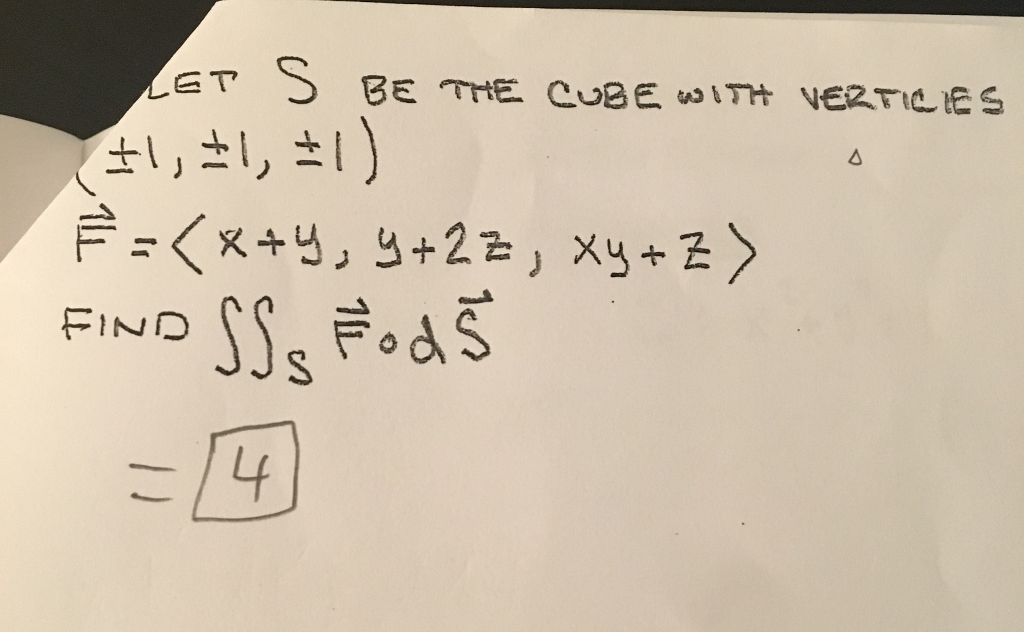 LET S BE THE CUBE WITH VERTICIES
(±1, ±1, ±1)
F⃗ = ⟨x+y, y+2z, xy+z⟩
FIND ∬_S F⃗ ∘ dS⃗
= 4